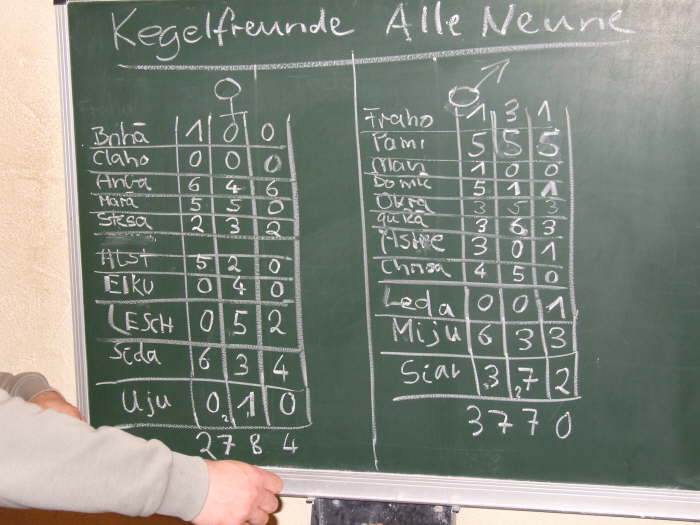 Kegelfreunde Alle Neune
♀
Brihä 1 0 0
Claho 0 0 0
Anba 6 4 6
Mara 5 5 0
Stesa 2 3 2
Alst 5 2 0
Elku 0 4 0
LESCH 0 5 2
Seda 6 3 4
Uju 0 1 0
2 7 8 4
♂
Fraho 1 3 1
Pami 5 5 5
1 0 0
Domik 5 1 1
Okra 3 5 3
3 6 3
3 0 1
Chrisa 4 5 0
Leda 0 0 1
Miju 6 3 3
Siar 3 7 2
3 7 7 0